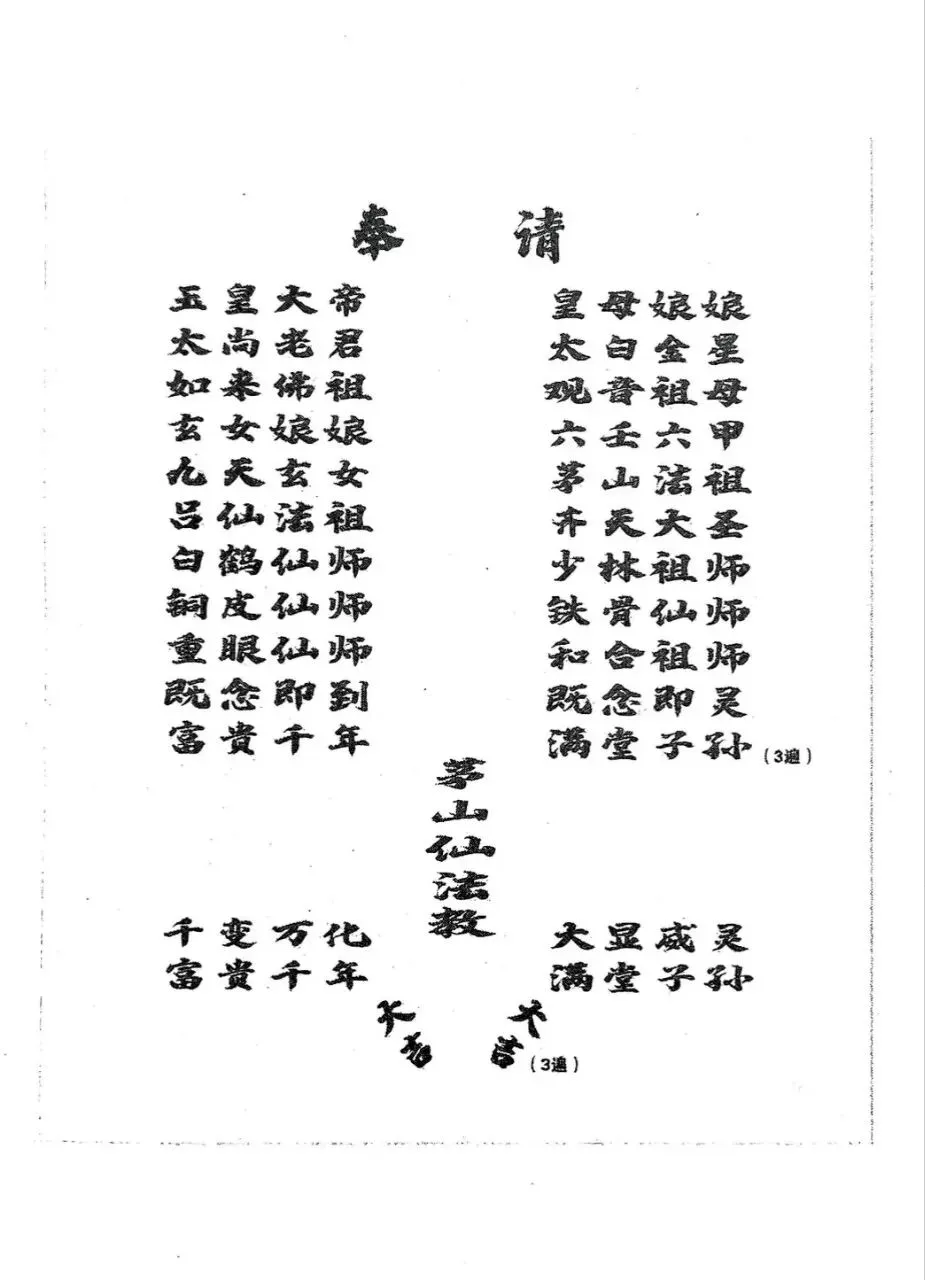 奉 请
玉皇大帝 皇母娘娘
太尚老君 太白金星
如来佛祖 观音祖母
玄女娘娘 六壬六甲
九天玄女 茅山法祖
吕仙法祖 齐天大圣
白鹤仙师 少林祖师
铜皮仙师 铁骨仙师
重眼仙师 和合祖师
既念即到 既念即灵
富贵千年 满堂子孙（3遍）
茅山仙法教
千变万化 大显威灵
富贵千年 满堂子孙
大吉 大吉（3遍）